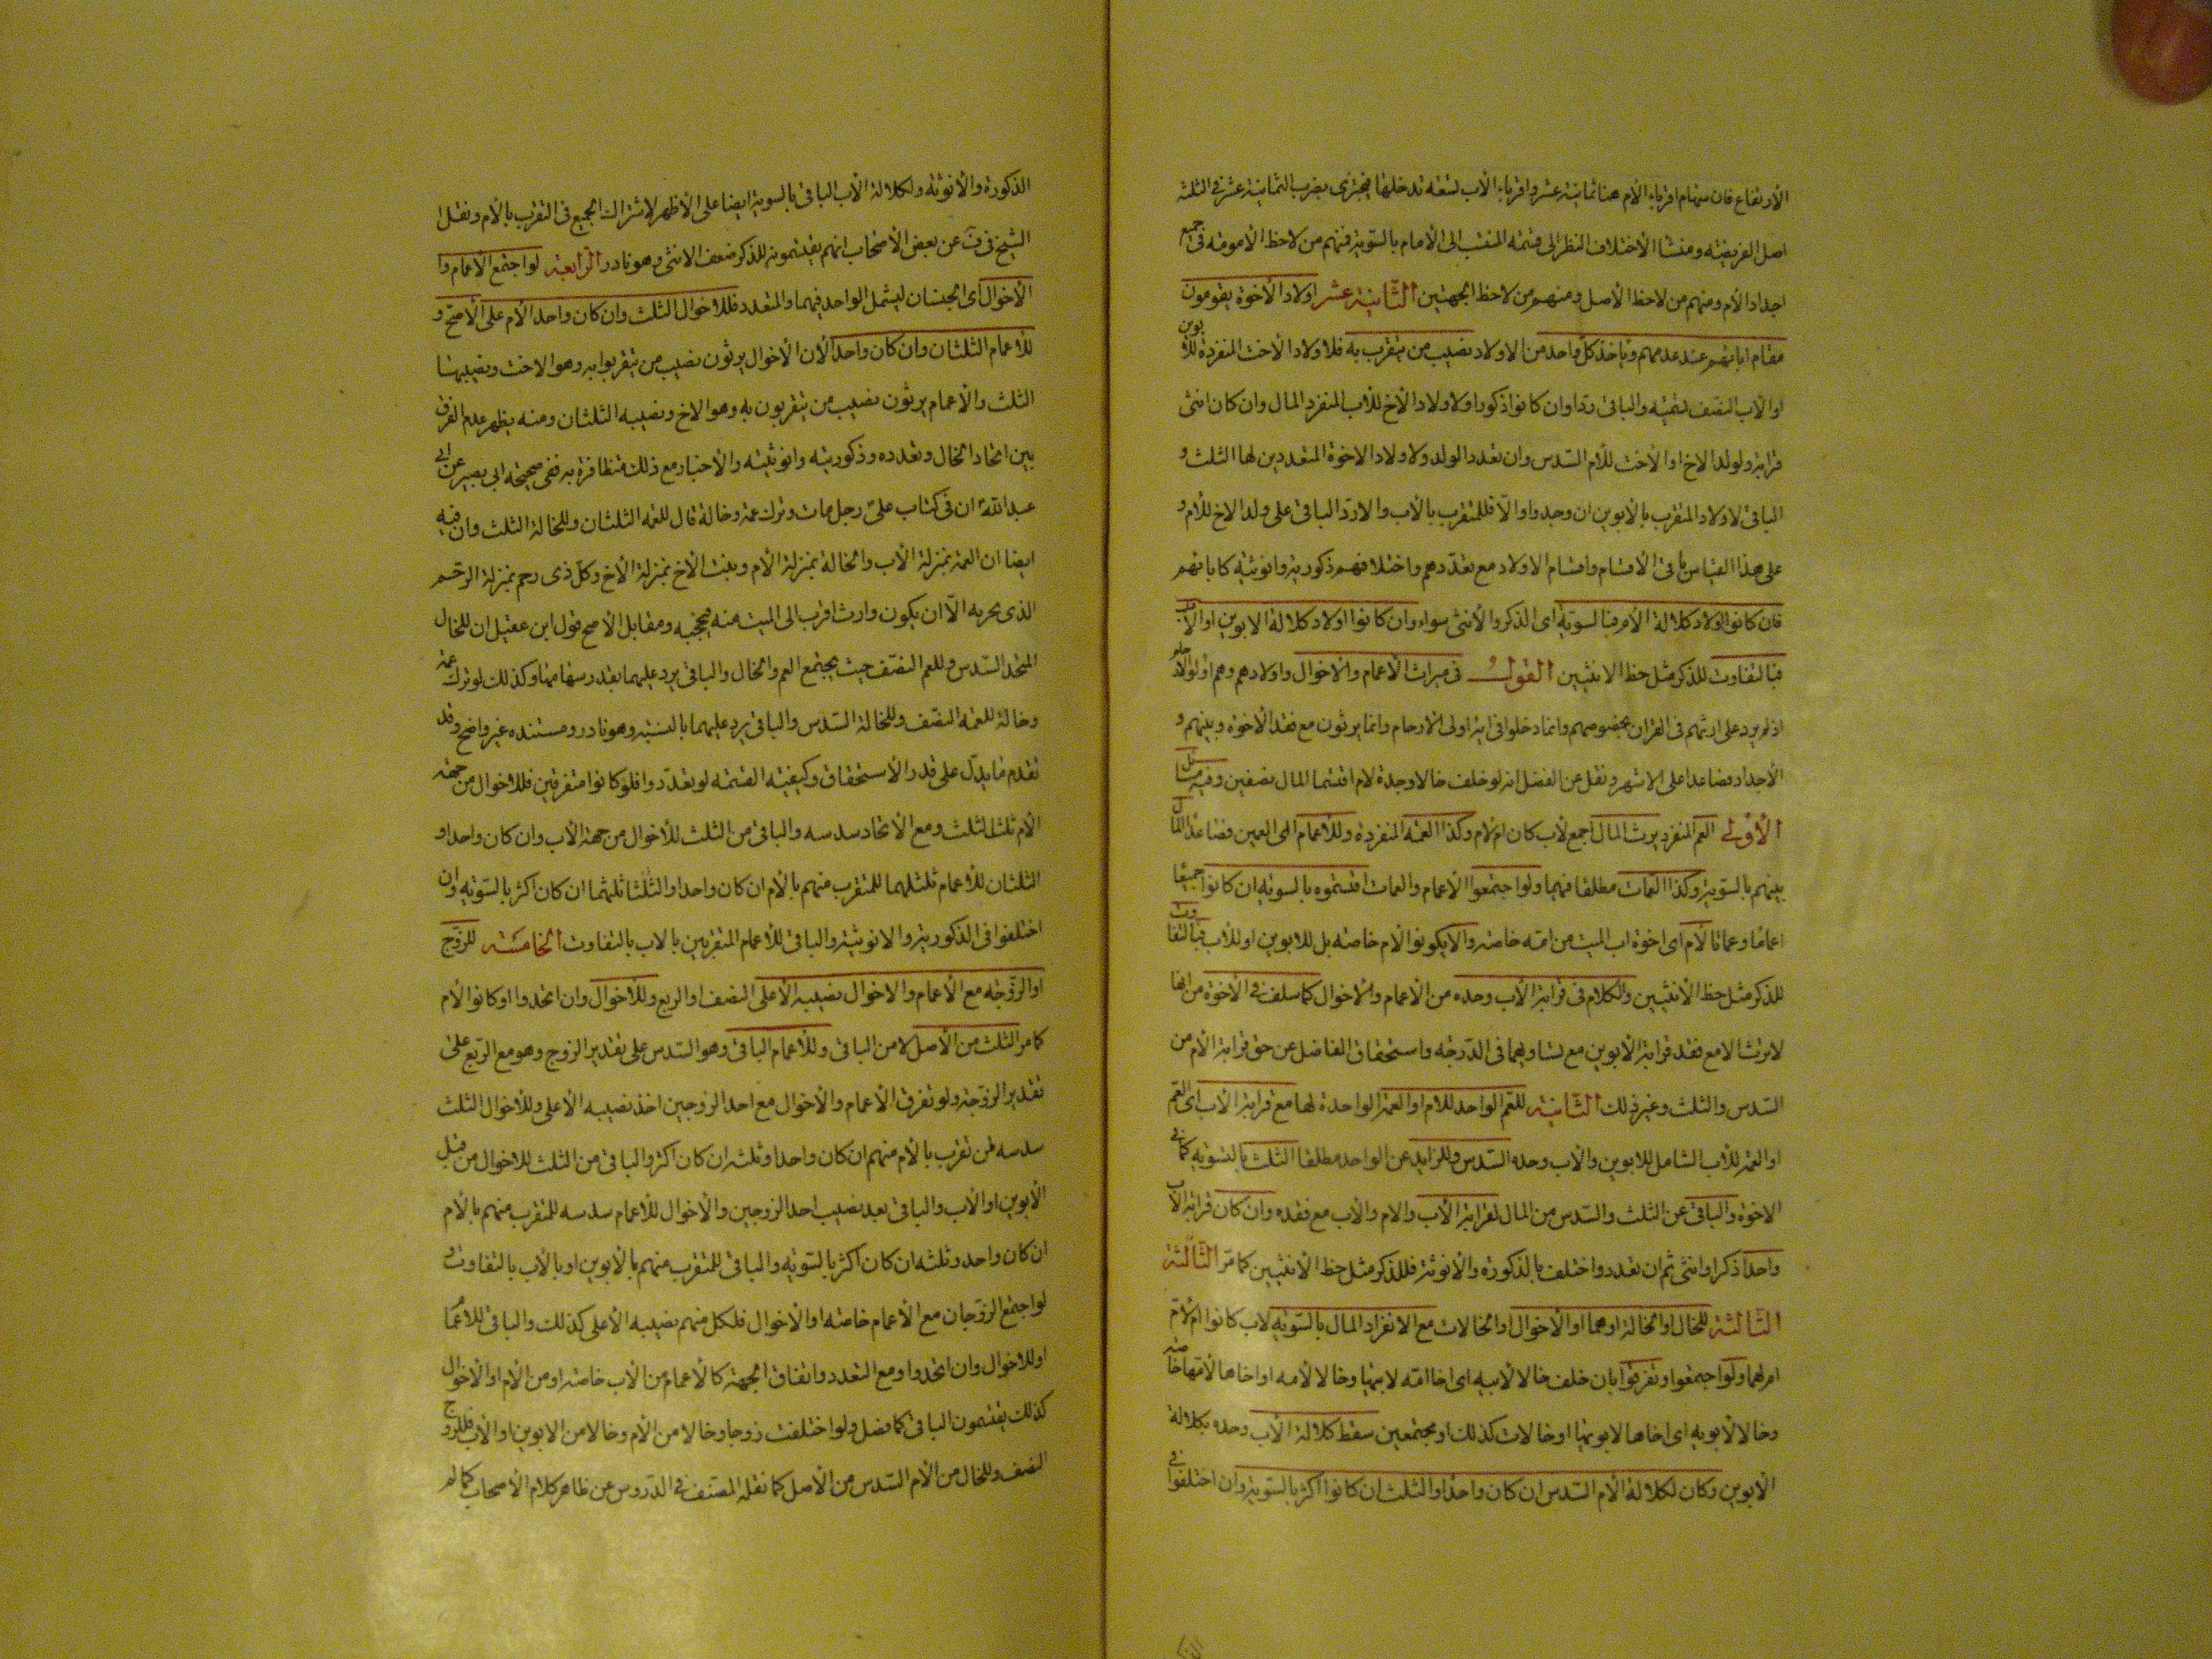 الارتفاع فان سهام اقرباء الأم هنا ثمانية عشر واقرباء الأب تسعة تدخل فيها فيجتزى بضرب الثمانية عشر في الثلثة
اصل الفريضة ومنشأ الأختلاف النظر الى قسمة المنتسب الى الأم بالسوية فمنهم من لاحظ الأمومة في جميع
اجداد الأم ومنهم من لاحظ الأصل ومنهم من لاحظ الجهتين الثانية عشر اولاد الأخوة يقومون
مقام ابائهم عند عدمهم وياخذ كل واحد من الاولاد نصيب من يتقرب به فلاولاد الأخت المنفردة للأبوين
او الأب النصف تسمية والباقى ردا وان كانوا ذكورا ولاولاد الأخ للأب المنفرد المال وان كان انثى
قرابة ولولد الاخ او الأخت للأم السدس وان تعدد الولد ولاولاد الاخوة المتعددين لها الثلث و
الباقى لاولاد المتقرب بالأبوين ان وجدوا والا فللمتقرب بالأب والا رد الباقى على ولد الاخ للأم و
على هذا القياس باقى الأقسام واقتسام الاولاد مع تعددهم واختلافهم ذكورية وانوثية كابائهم
فان كانوا اولاد كلالة الأم فبالسوية اى الذكر والأنثى سواء وان كانوا اولاد كلالة الابوين او الأب
فبالتفاوت للذكر مثل حظ الانثيين القول فى ميراث الأعمام والاخوال واولادهم وهم اولو الارحام
اذ لم يرد على ارثهم فى القران بخصوصهم وانما دخلوا فى اية اولى الارحام وانما يرثون مع فقد الأخوة وبنيهم و
الأجداد فصاعدا على الاشهر ونقل عن الفضل انه لو خلف خالا وجدة لام اقتسما المال نصفين وفيه مسائل
الأولى العم المنفرد يرث المال اجمع لأب كان ام لام وكذا العمة المنفردة وللأعمام اى العمين فصاعدا المال
بينهم بالسوية وكذا العمات مطلقا فيهما ولو اجتمعوا الأعمام والعمات اقتسموه بالسوية ان كانوا جميعا
اعماما وعمات لأم اى اخوة اب الميت من امه خاصة والا يكونوا لام خاصة بل للابوين او للأب فبالتفاوت
للذكر مثل حظ الأنثيين والكلام فى قرابة الأب وحده من الأعمام والأخوال كما سلف في الأخوة من انها
لا ترث الا مع فقد قرابة الأبوين مع تساويهما فى الدرجة واستحقاق الفاضل عن حق قرابة الأم من
السدس والثلث وغير ذلك الثانية للعم الواحد للام او العمة الواحدة لها مع قرابة الأب اى العم
او العمة للأب الشامل للابوين والأب وحده السدس وللزايد عن الواحد مطلقا الثلث بالسوية كما فى
الاخوة والباقى عن الثلث والسدس من المال لقرابة الأب والام والأب مع فقده وان كان قرابة الأب
واحدا ذكرا او انثى ثم ان تعدد واختلف بالذكورة والأنوثة فللذكر مثل حظ الأنثيين كما مر الثالثة
الثالثة للخال او الخالة او هما او الأخوال او الخالات مع الانفراد المال بالسوية لاب كانوا ام لام
ام لهما ولو اجتمعوا وتفرقوا بان خلف خالا لأبيه اى اخا امه لابيها وخالا لامه او اخاها لأمها خاصة
وخالا لأبويه اى اخاها لابويها او خالات كذلك او مجتمعين سقط كلالة الأب وحده بكلالة
الأبوين وكان لكلالة الأم السدس ان كان واحدا والثلث ان كانوا اكثر بالسوية وان اختلفوا فى
الذكورة والأنوثة ولكلالة الأب الباقى بالسوية ايضا على الأظهر لاشتراك الجميع فى التقرب بالأم ونقل
الشيخ فى ف عن بعض الأصحاب انهم يقتسمونه للذكر ضعف الانثى وهو نادر الرابعة لو اجتمع الأعمام وا
لأخوال اى الجنسان ليشمل الواحد فيهما والمتعدد فللاخوال الثلث وان كان واحدا لأم على الأصح و
للأعمام الثلثان وان كان واحدا لأن الأخوال يرثون نصيب من يتقربوا به وهو الاخت ونصيبها
الثلث والأعمام يرثون نصيب من يتقربون به وهو الاخ ونصيبه الثلثان ومنه يظهر عدم الفرق
بين اتحاد الخال وتعدده وذكوريته وانوثيته والأخبار مع ذلك متظافرة به ففى صحيحة ابي بصير عن ابى
عبد الله ان فى كتاب على رجل مات وترك عمة وخالة قال للعمة الثلثان وللخالة الثلث وان فيه
ايضا ان العمة بمنزلة الأب والخالة بمنزلة الأم وبنت الأخ بمنزلة الأخ وكل ذى رحم بمنزلة الرحم
الذى يجر به الا ان يكون وارث اقرب الى الميت منه فيحجبه ومقابل الأصح قول ابن عقيل ان للخال
المتحد السدس وللعم النصف حيث يجتمع العم والخال والباقى يرد عليهما بقدر سهامهما وكذلك لو ترك عمة
وخالة للعمة النصف وللخالة السدس والباقى يرد عليهما بالنسبة وهو نادر ومستنده غير واضح وقد
تقدم ما يدل على قدر الأستحقاق وكيفية القسمة لو تعددوا فلو كانوا متفرقين فللاخوال من جهة
الأم ثلث الثلث ومع الأتحاد سدسه والباقى من الثلث للأخوال من جهة الأب وان كان واحدا و
الثلثان للأعمام للمتقرب منهم بالأم ان كان واحدا والثلث ان كان اكثر بالسوية وان
اختلفوا فى الذكورية والانوثية والباقى للأعمام المتقربين بالاب بالتفاوت الخامسة للزوج
او الزوجة مع الأعمام والاخوال نصيبه الأعلى النصف او الربع وللأخوال وان اتحدوا او كانوا لأم
كما مر الثلث من الأصل لا من الباقى وللأعمام الباقى وهو السدس على تقدير الزوج وهو مع الربع على
تقدير الزوجة ولو تفرق الأعمام والأخوال مع احد الزوجين اخذ نصيبه الأعلى وللأخوال الثلث
سدسه لمن تقرب بالأم منهم ان كان واحدا وثلثه ان كان اكثر والباقى من الثلث للاخوال من قبل
الأبوين او الأب والباقى بعد نصيب احد الزوجين والأخوال للأعمام سدسه للمتقرب منهم بالأم
ان كان واحد وثلثه ان كان اكثر بالسوية والباقى للمتقرب منهم بالأبوين او بالأب بالتفاوت و
لو اجتمع الزوجان مع الأعمام خاصة او الأخوال فلكل منهم نصيبه الأعلى كذلك والباقى للأعمام
او للاخوال وان اتحدوا ومع التعدد واتفاق الجهة كالأعمام من الأب خاصة او من الأم او الأخوال
كذلك يقتسمون الباقى كما فصل ولو اختلفت زوجا وخالا من الأم وخالا من الابوين او الأب فللزوج
النصف وللخال من الأم السدس من الأصل كما نقله المصنف في الدروس عن ظاهر كلام الأصحاب كما لو